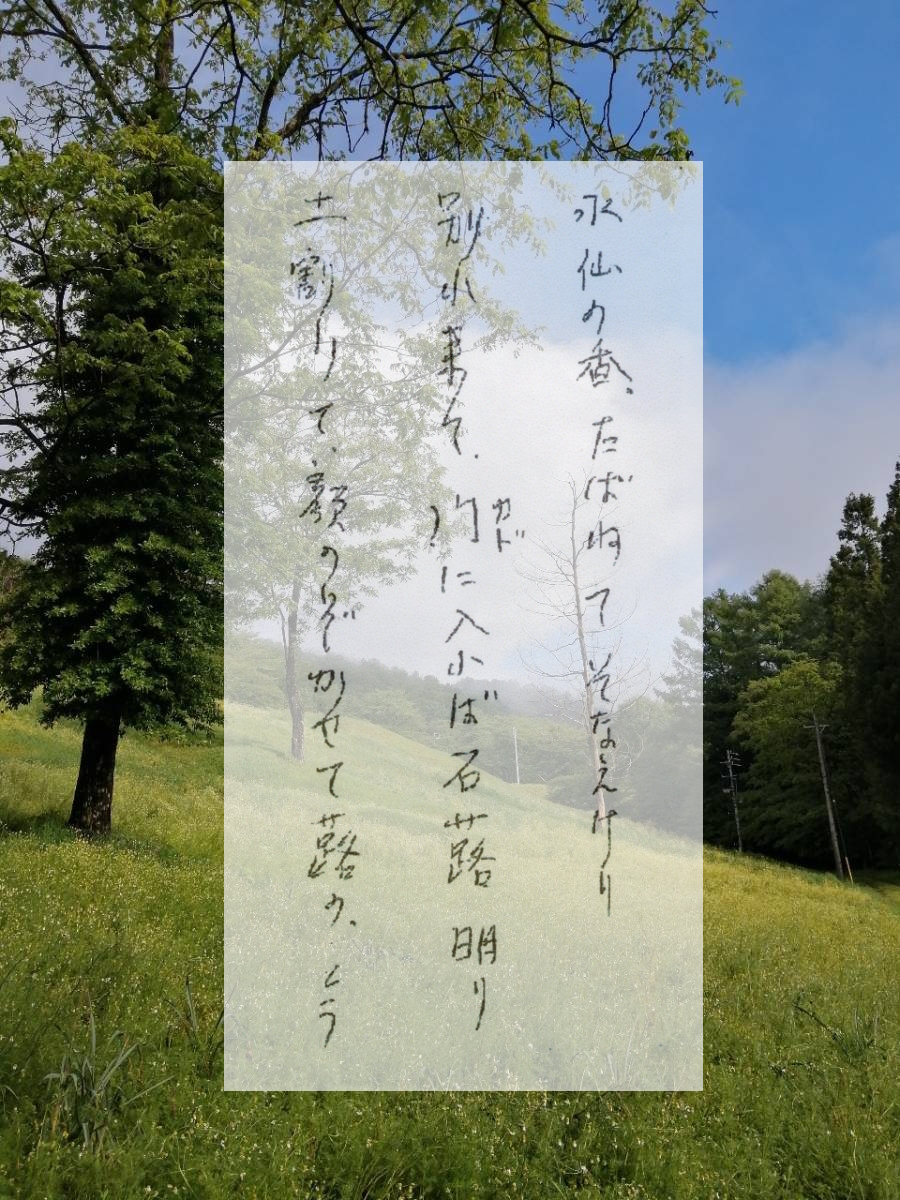 水仙の香、たばねてそなえけり
別れ来て、門に入れば石蕗明り
カド
土割りて、顔のぞかせて蕗の、とう